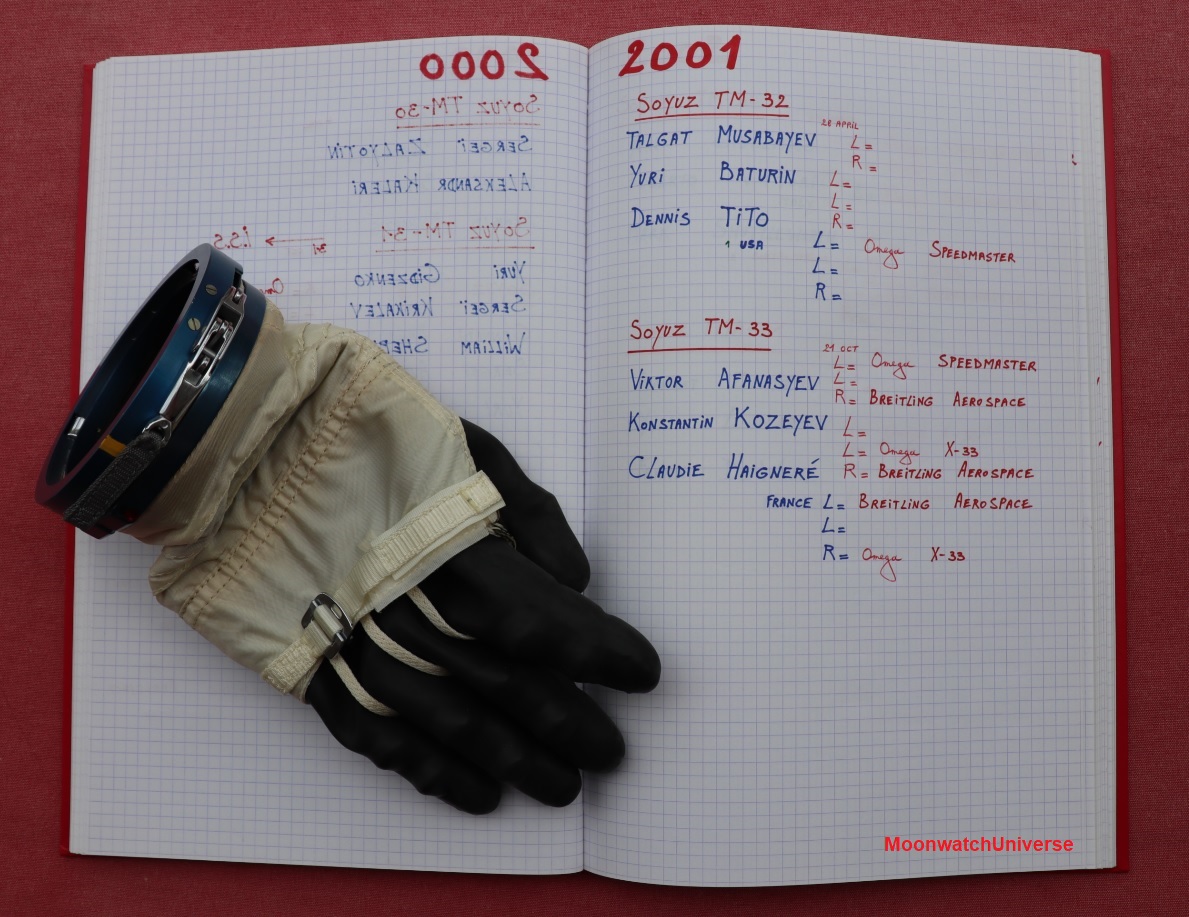 2000
SOYUZ TM-30
SERGEÏ ZALYOTIN
ALEKSANDR KALERI
SOYUZ TM-31
31 → I.S.S
YURI GIDZENKO
SERGEÏ KRIKALEV
WILLIAM
2001
SOYUZ TM-32
28 APRIL
TALGAT MUSABAYEV L=
R=
YURI BATURIN L=
L=
R=
DENNIS TITO
1 USA L= Omega SPEEDMASTER
L=
R=
SOYUZ TM-33
21 OCT
L= Omega SPEEDMASTER
VIKTOR AFANASYEV L=
R= BREITLING AEROSPACE
KONSTANTIN KOZEYEV L=
L= Omega X-33
CLAUDIE HAIGNERÉ R= BREITLING AEROSPACE
FRANCE L= BREITLING AEROSPACE
L=
R= Omega X-33
MoonwatchUniverse